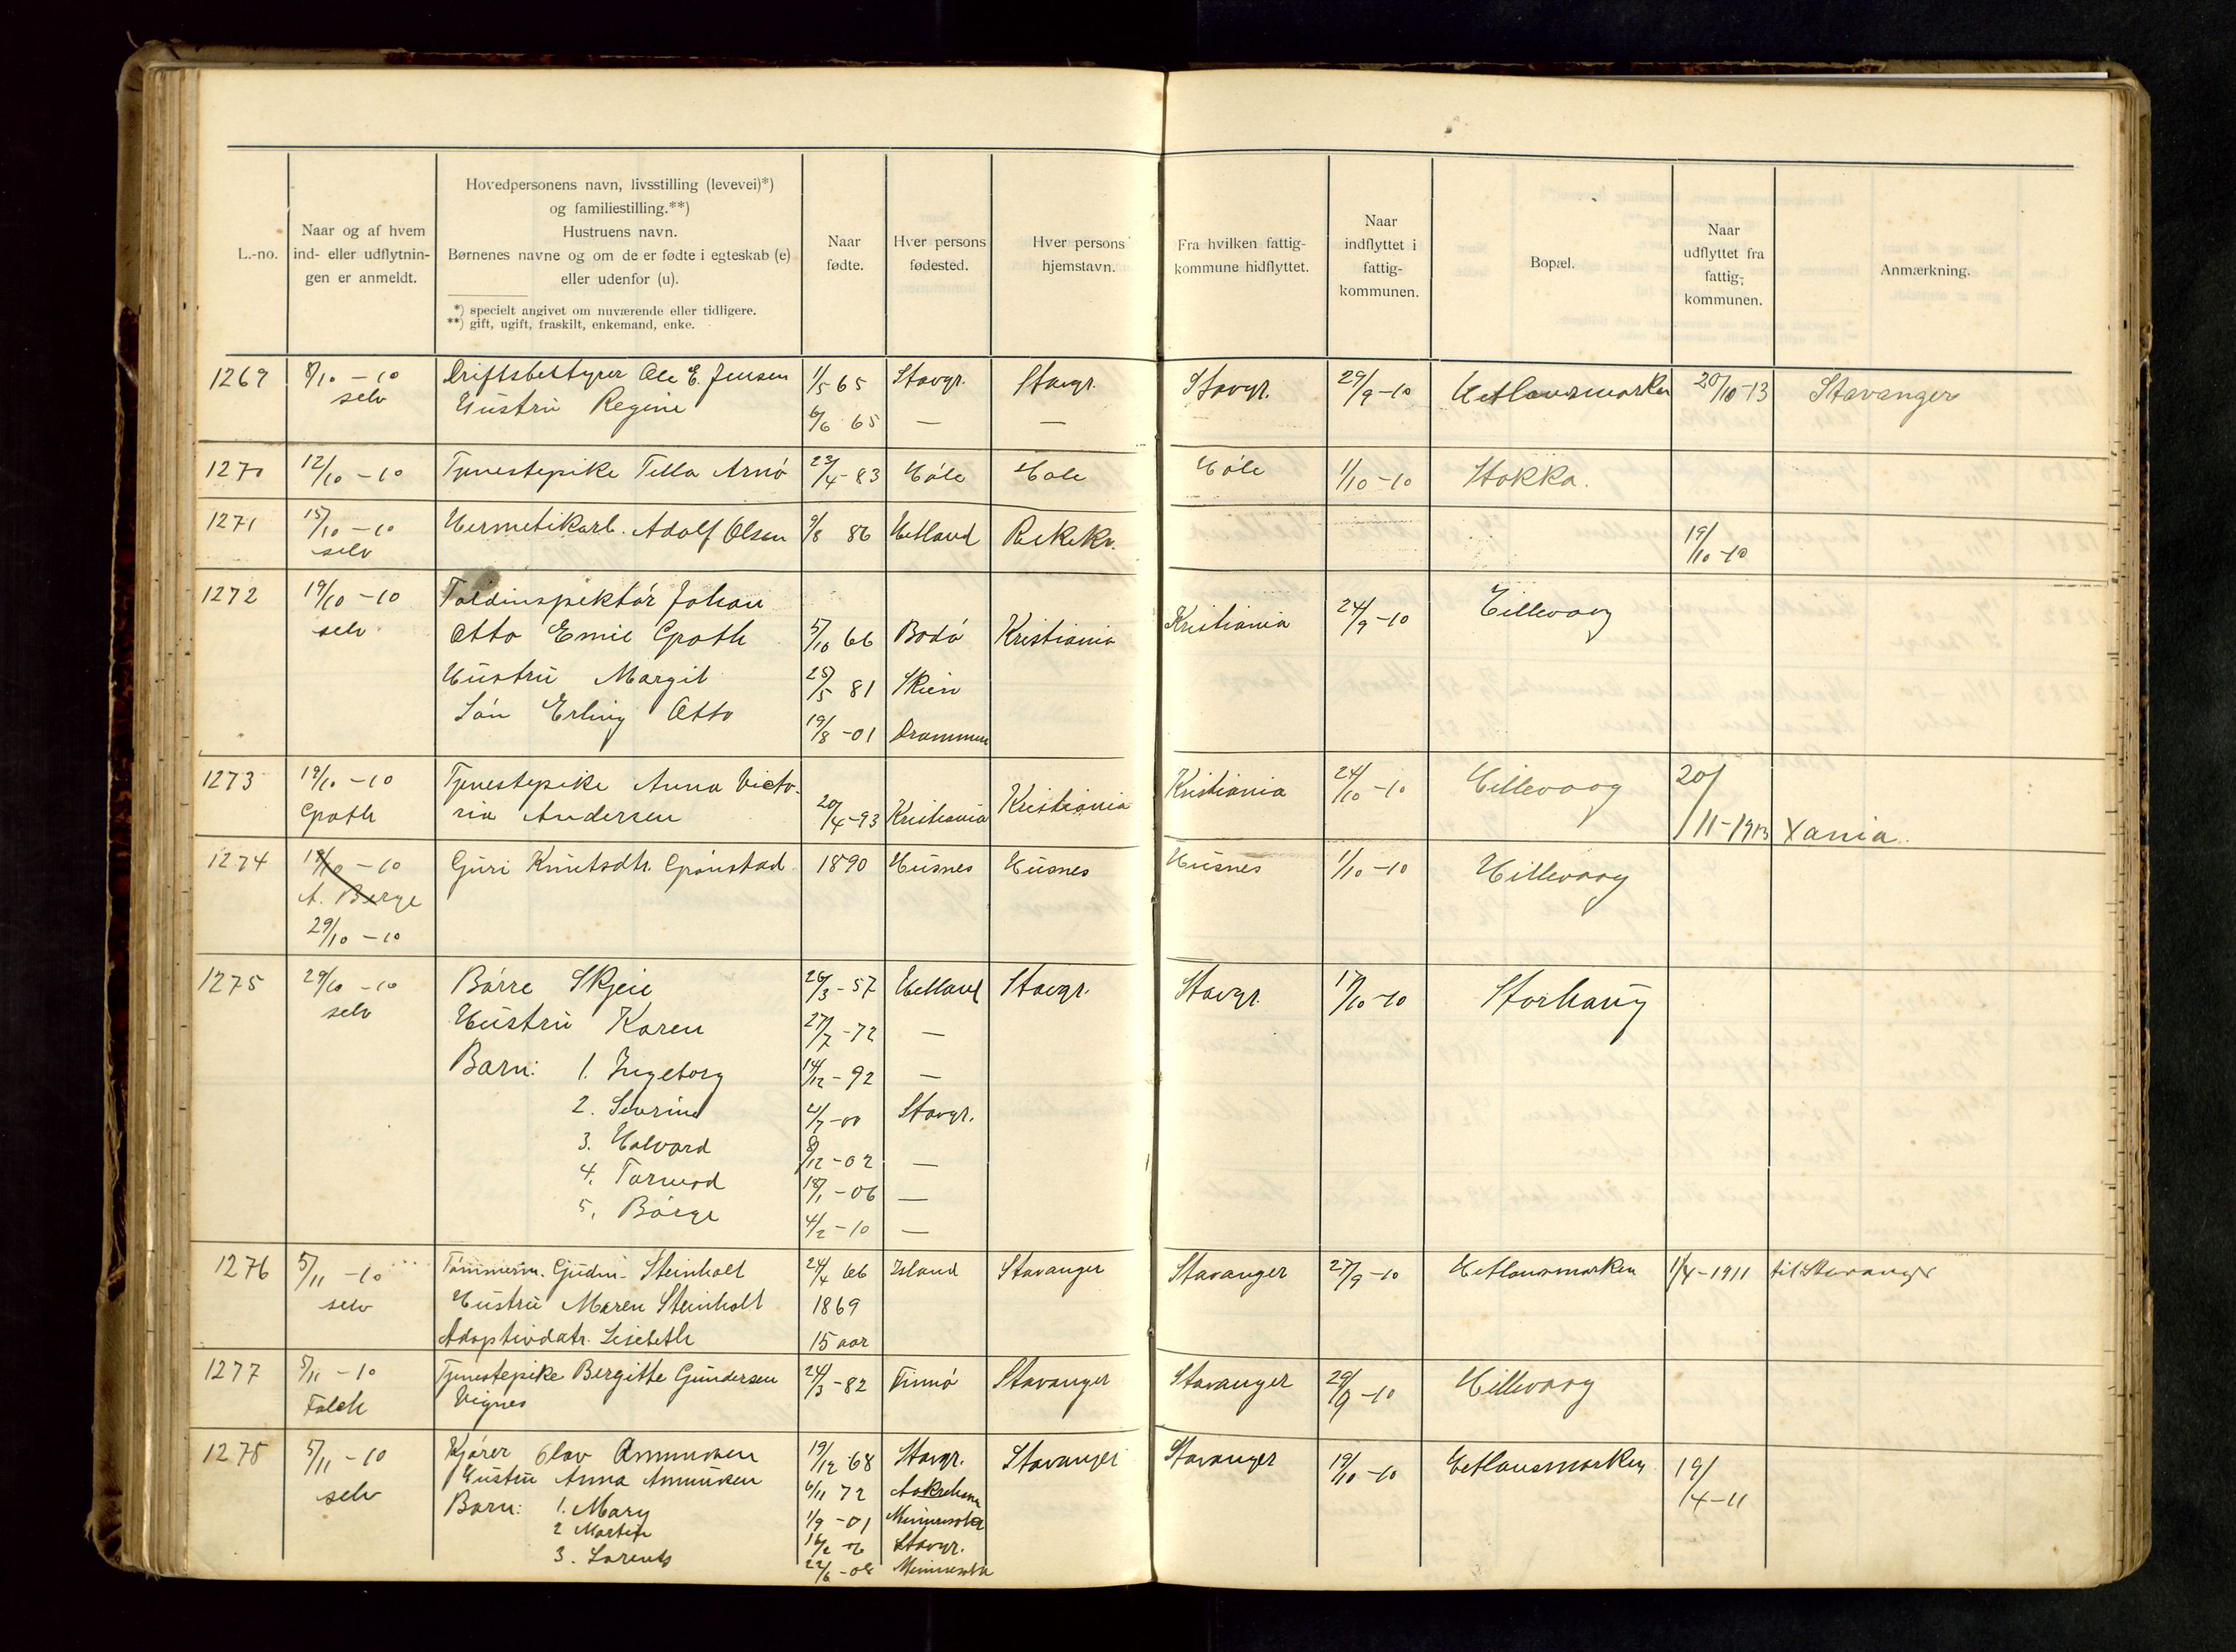 L.-no.
Naar og af hvem
ind- eller udflytnin-
gen er anmeldt.
Hovedpersonens navn, livsstilling (levevei)*)
og familiestilling.**)
Hustruens navn.
Børnenes navne og om de er fødte i egteskab (e)
eller udenfor (u).
*) specielt angivet om nuværende eller tidligere.
**) gift, ugift, fraskilt, enkemand, enke.
Naar
fødte.
Hver persons
fødested.
Hver persons
hjemstavn.
Fra hvilken fattig-
kommune hidflyttet.
Naar
indflyttet i
fattig-
kommunen.
Bopæl.
Naar
udflyttet fra
fattig-
kommunen.
Anmærkning.
1269 8/10 - 10 Driftsbestyrer Ole E. Jensen 1/5 65 Stavgr. Stavgr. Stavgr. 29/9-10 Hetlandsmarken 20/10-13 Stavanger
selv Hustru Regine 6/6 65 — —
1270 12/10 - 10 Tjenestepike Tella Arnö 23/4-83 Höle Höle Höle 1/10-10 Stokka.
1271 15/10 - 10 Hermetikarb. Adolf Olsen 9/8 86 Hetland 19/10-10
selv
1272 19/10 - 10 Toldinspektör Johan
selv Otto Emil Groth 5/10 66 Bodö Kristiania Kristiania 24/9-10 Hillevaag
Hustru Margit 25/5 81 Skien
Sön Erling Otto 19/8-01 Drammen
1273 19/10 - 10 Tjenestepike Anna Victo-
Groth ria Andersen 20/4-93 Kristiania Kristiania Kristiania 24/10-10 Hillevaag 20/11-1913 Xania.
1274 19/10 - 10 Guri Knutsdtr. Grönstad 1890 Husnes Husnes Husnes 1/10-10 Hillevaag
A. Berge
29/10 - 10
1275 29/10 - 10 Börre Skjeie 26/3-57 Hetland Stavgr. Stavgr. 17/10-10 Storhaug
selv Hustru Karen 27/7-72 —
Barn: 1. Ingeborg 14/12-92 —
2. Severine 4/7-00 Stavgr.
3. Halvard 8/12-02 —
4. Tormod 18/1-06 —
5. Börge 4/2-10 —
1276 5/11 - 10 Tömmerm. Gudm. Steinholt 24/4 66 Island Stavanger Stavanger 27/9-10 Hetlandsmarken 1/4-1911 til Stavanger
selv Hustru Maren Steinholt 1869
Adoptivdatr. Lisebeth 15 aar
1277 5/11 - 10 Tjenestepike Bergitte Gundersen 24/3-82 Finnö Stavanger Stavanger 29/9-10 Hillevaag
Falck Vignes
1278 5/11 - 10 Kjörer Olav Ammundsen 19/12 68 Stavgr. Stavanger Stavanger 19/10-10 Hetlandsmarken 19/4-11
selv Hustru Anna Ammundsen 6/11 72 Aakrehavn
Barn: 1. Mary 1/9-01 Minnesota
2 Martin Stavgr.
3. Lorents Minnesota